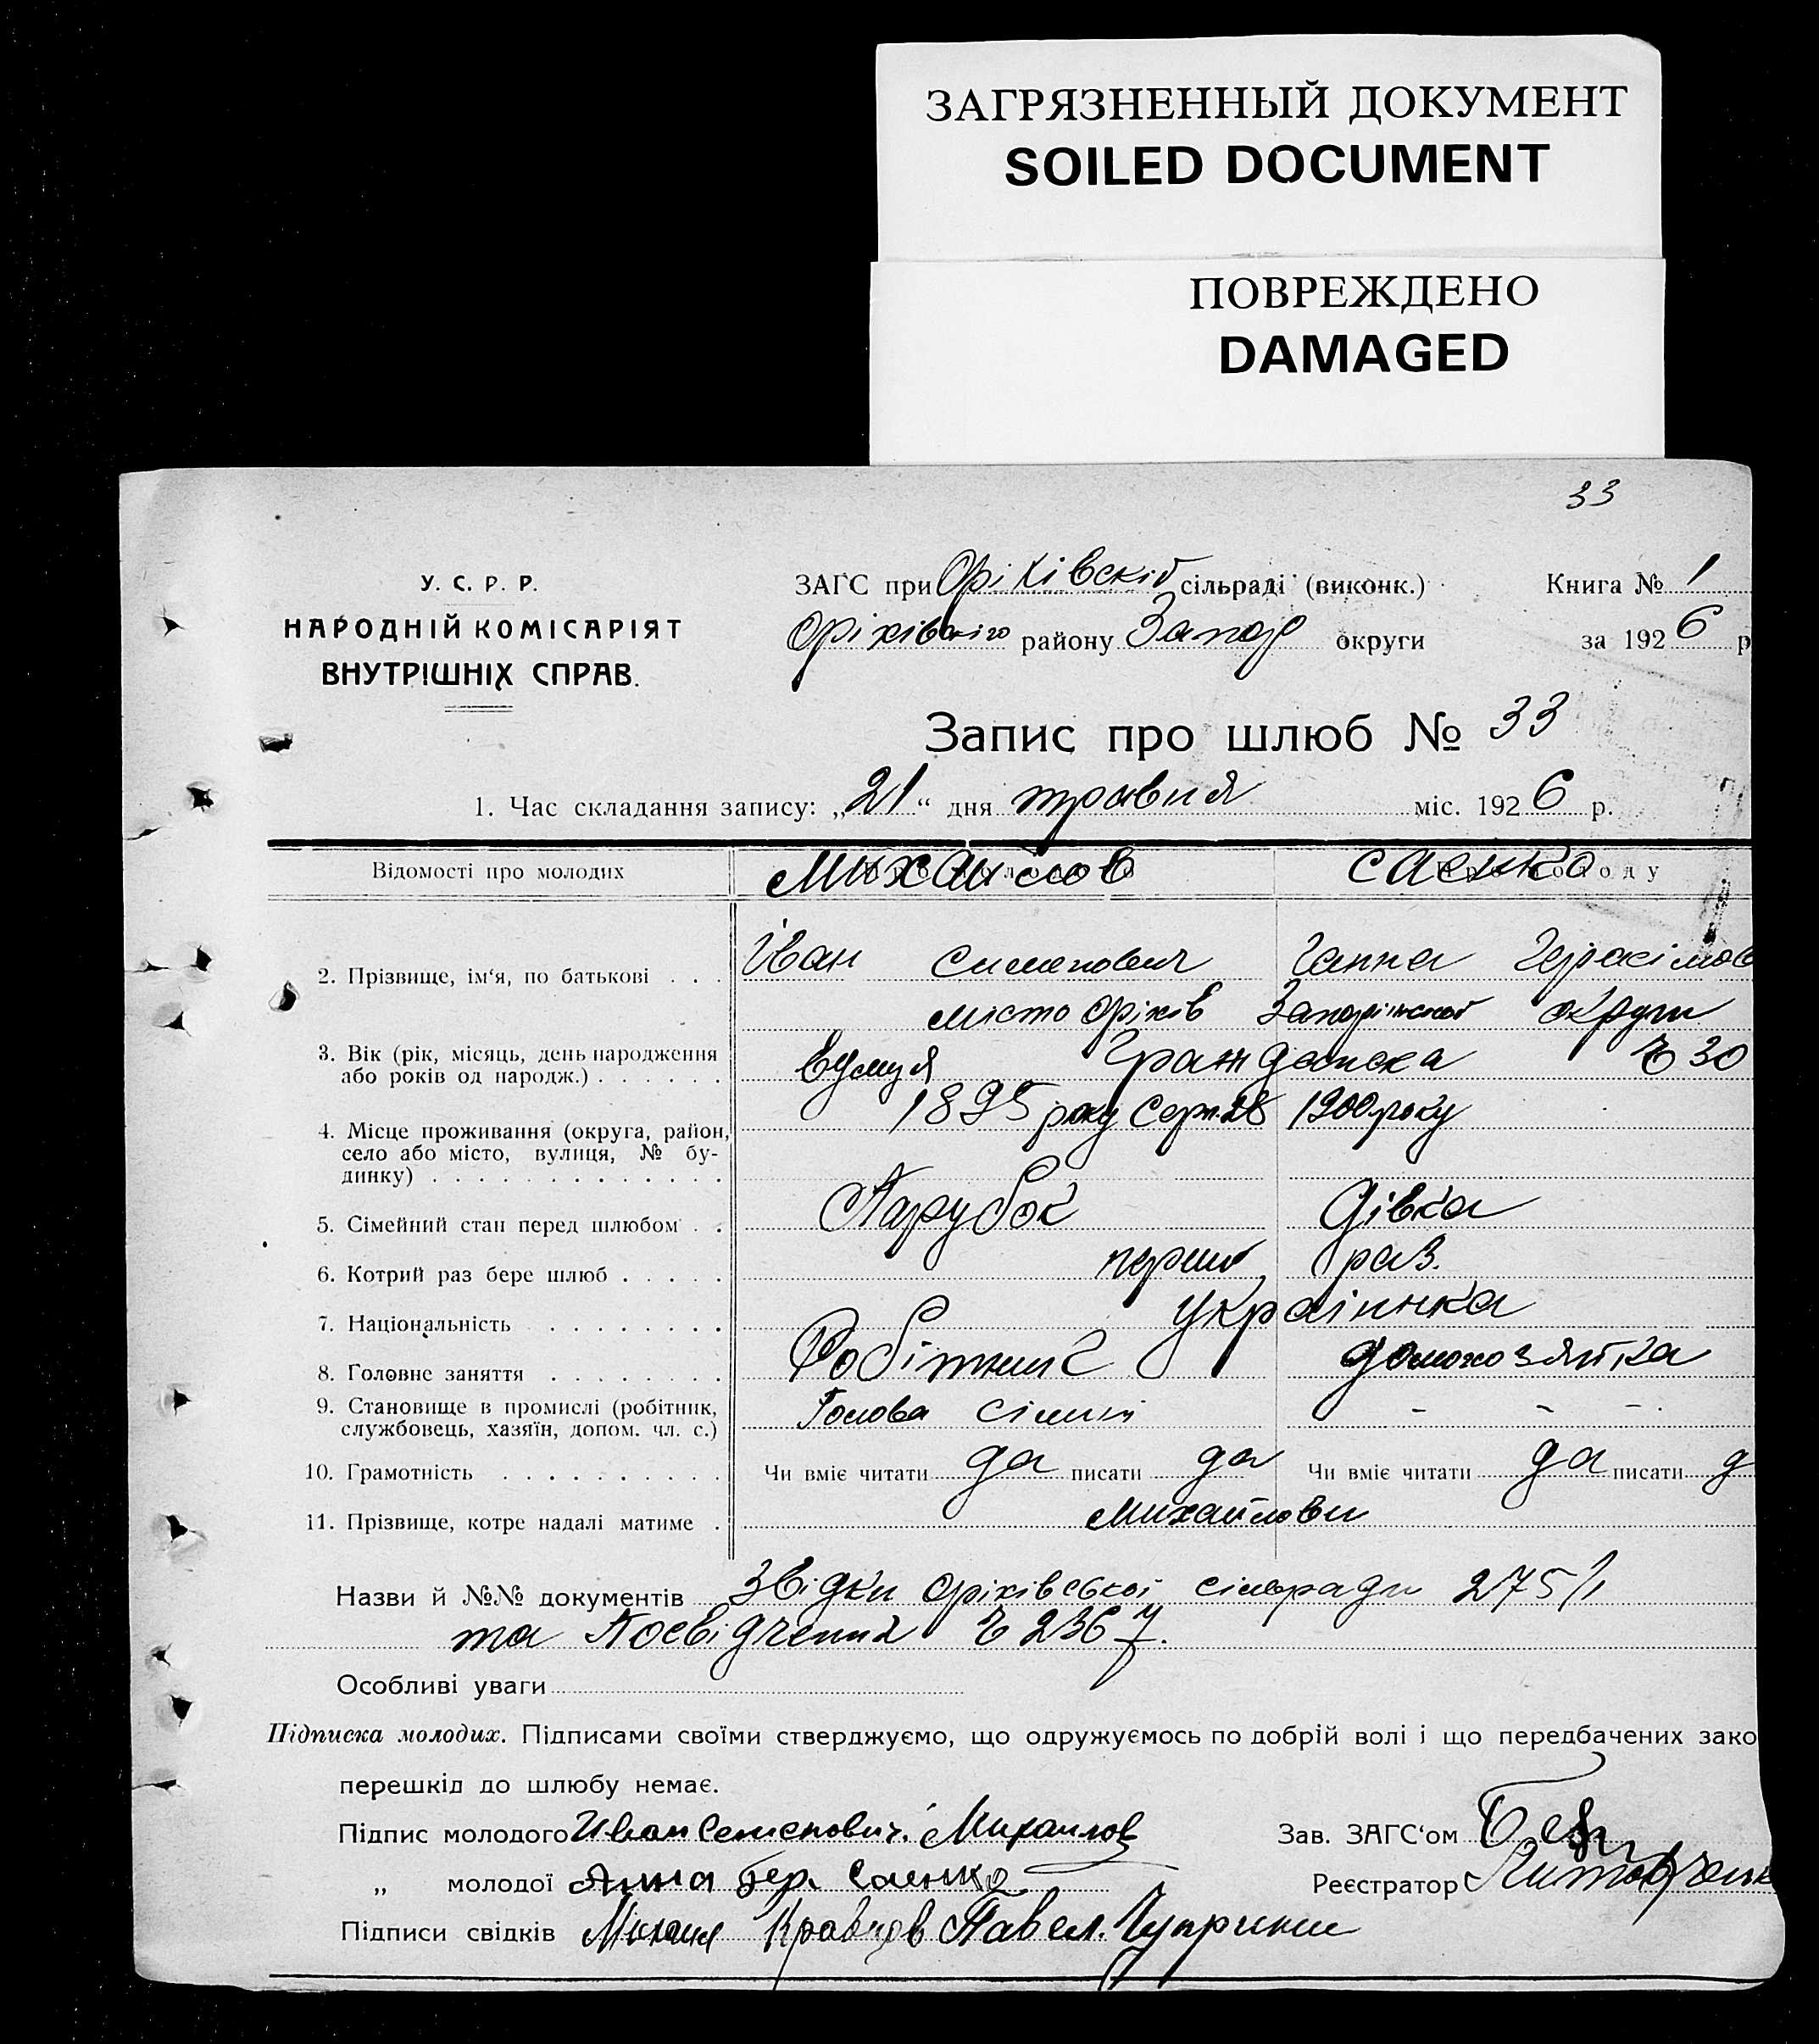 ЗАГРЯЗНЕННЫЙ ДОКУМЕНТ
SOILED DOCUMENT
ПОВРЕЖДЕНО
DAMAGED
33
У. С. Р. Р.
НАРОДНІЙ КОМІСАРІЯТ
ВНУТРІШНІХ СПРАВ.
ЗАГС при Оріхівскій сільраді (виконк.) Книга № 1
Оріхівского району Запор округи за 1926 р
Запис про шлюб № 33
1. Час складання запису: „21“ дня травня міс. 1926 р.
Відомості про молодих Михайлов Саенко
2. Прізвище, ім‘я, по батькові . . . Іван Семенович Ганна Герасімов
місто Оріхів Запоріжской округи
3. Вік (рік, місяць, день народження вулиця Гражданска № 30
або років од народж.) . . . . . .
1895 року Серп. 28 1900 року
4. Місце проживання (округа, район,
село або місто, вулиця, № бу-
динку) . . . . . . . . . . . . .
5. Сімейний стан перед шлюбом . . Парубок Дівка
6. Котрий раз бере шлюб . . . . . перший раз.
7. Національність . . . . . . . . українка
8. Головне заняття . . . . . . . . Робітник домохозяйка
9. Становище в промислі (робітник, Голова сімьі - - -.
службовець, хазяїн, допом. чл. с.)
10. Грамотність . . . . . . . . . . Чи вміє читати да писати да Чи вміє читати да писати д
11. Прізвище, котре надалі матиме . Михайлови
Назви й №№ документів Звідки Оріхівської сільради 275/1
та Посвідчення № 2367.
Особливі уваги
Підписка молодих. Підписами своїми стверджуємо, що одружуємось по добрій волі і що передбачених зако
перешкід до шлюбу немає.
Підпис молодого Иван Семенович. Михаилов Зав. ЗАГС‘ом
„ молодої Анна Гер. Саенко Реєстратор
Підписи свідків Михаил Кравцов Павел. Чуприни